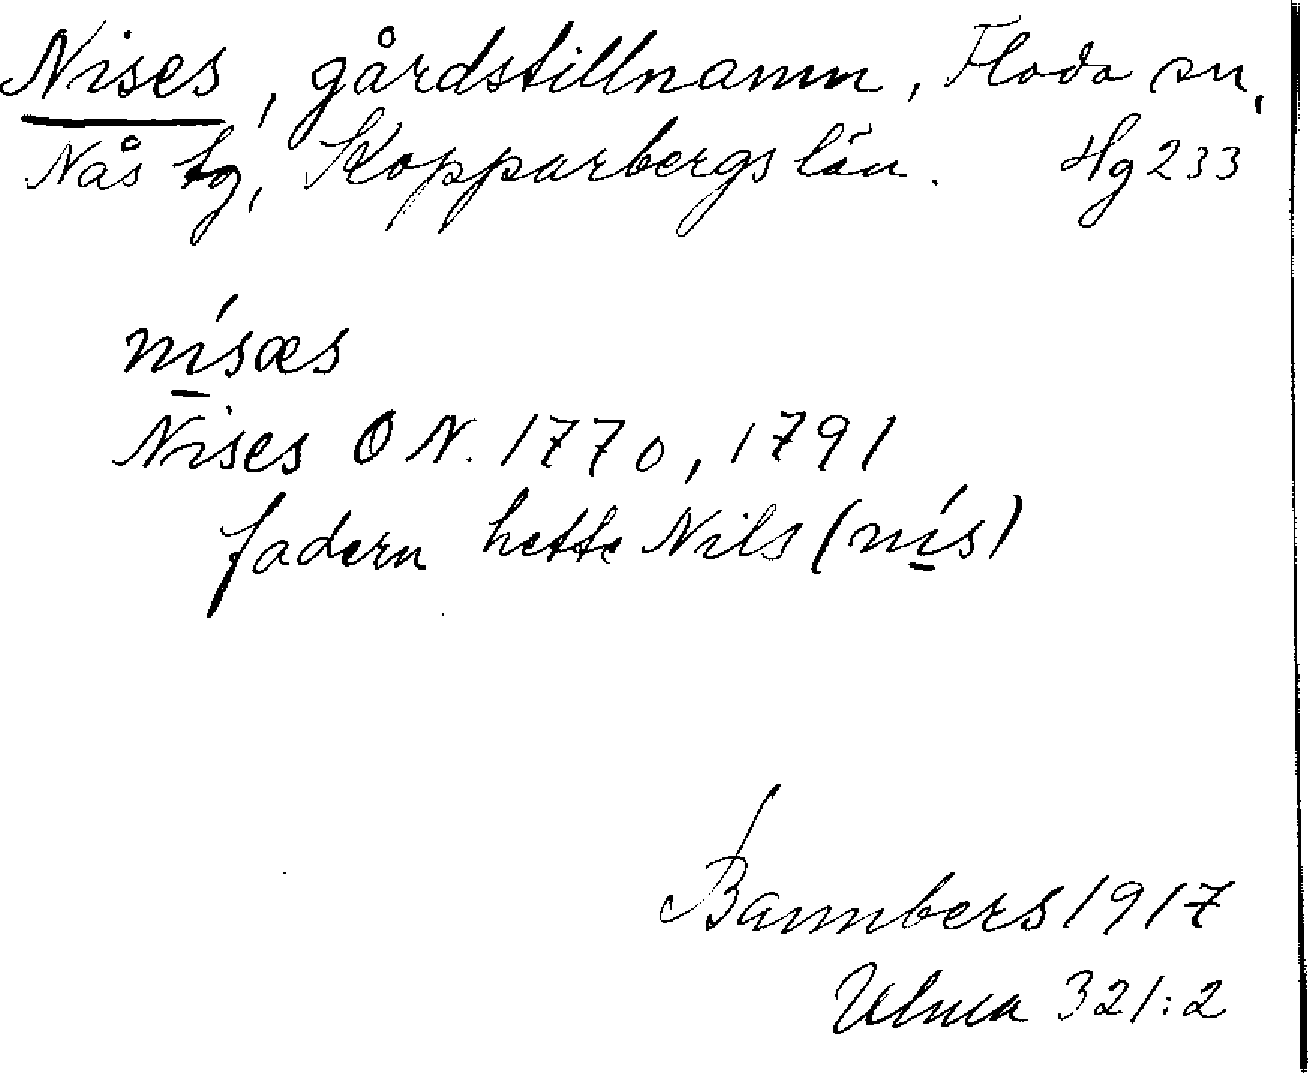 Nises, gårdstillnamn, Floda sn,
Nås tg, Kopparbergs län. Hg 233
nísæs
Nises ON. 1770, 1791
fadern hette Nils (nís)
Bannbers 1917
Ulma 321:2